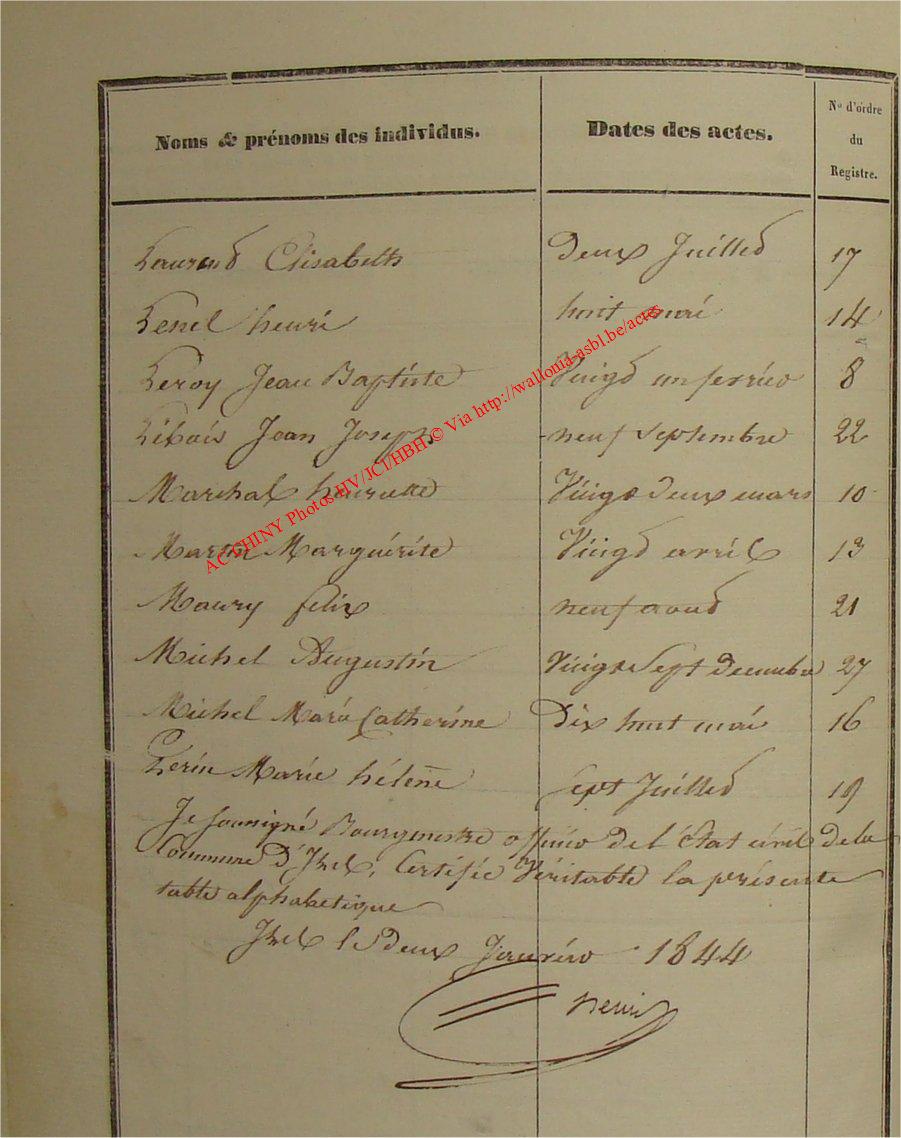 Noms & prénoms des individus. Dates des actes. No d'ordre du Registre.
Laurend Elisabeth deux Juilled 17
Lenel henri huit mai 14
Leroy Jean Baptiste Vingd un fevrier 8
Libois Jean Joseph neuf Septembre 22
Marchal henriette Vingt deux mars 10
Martin Marguérite Vingd avril 13
Maury felix neuf aoud 21
Michel Augustin Vingt Sept decembre 27
Michel Marie Catherine Dix huit mai 16
Marie hélene Sept Juilled 19
Je soussigné Bourgmestre officier de l'état civil de la
Commune d'Izel, Certifie Véritable la présente
table alphabetique
Izel le deux Janvier 1844
AC CHINY Photos HV/JCI/HBH © Via http://wallonia-asbl.be/actes